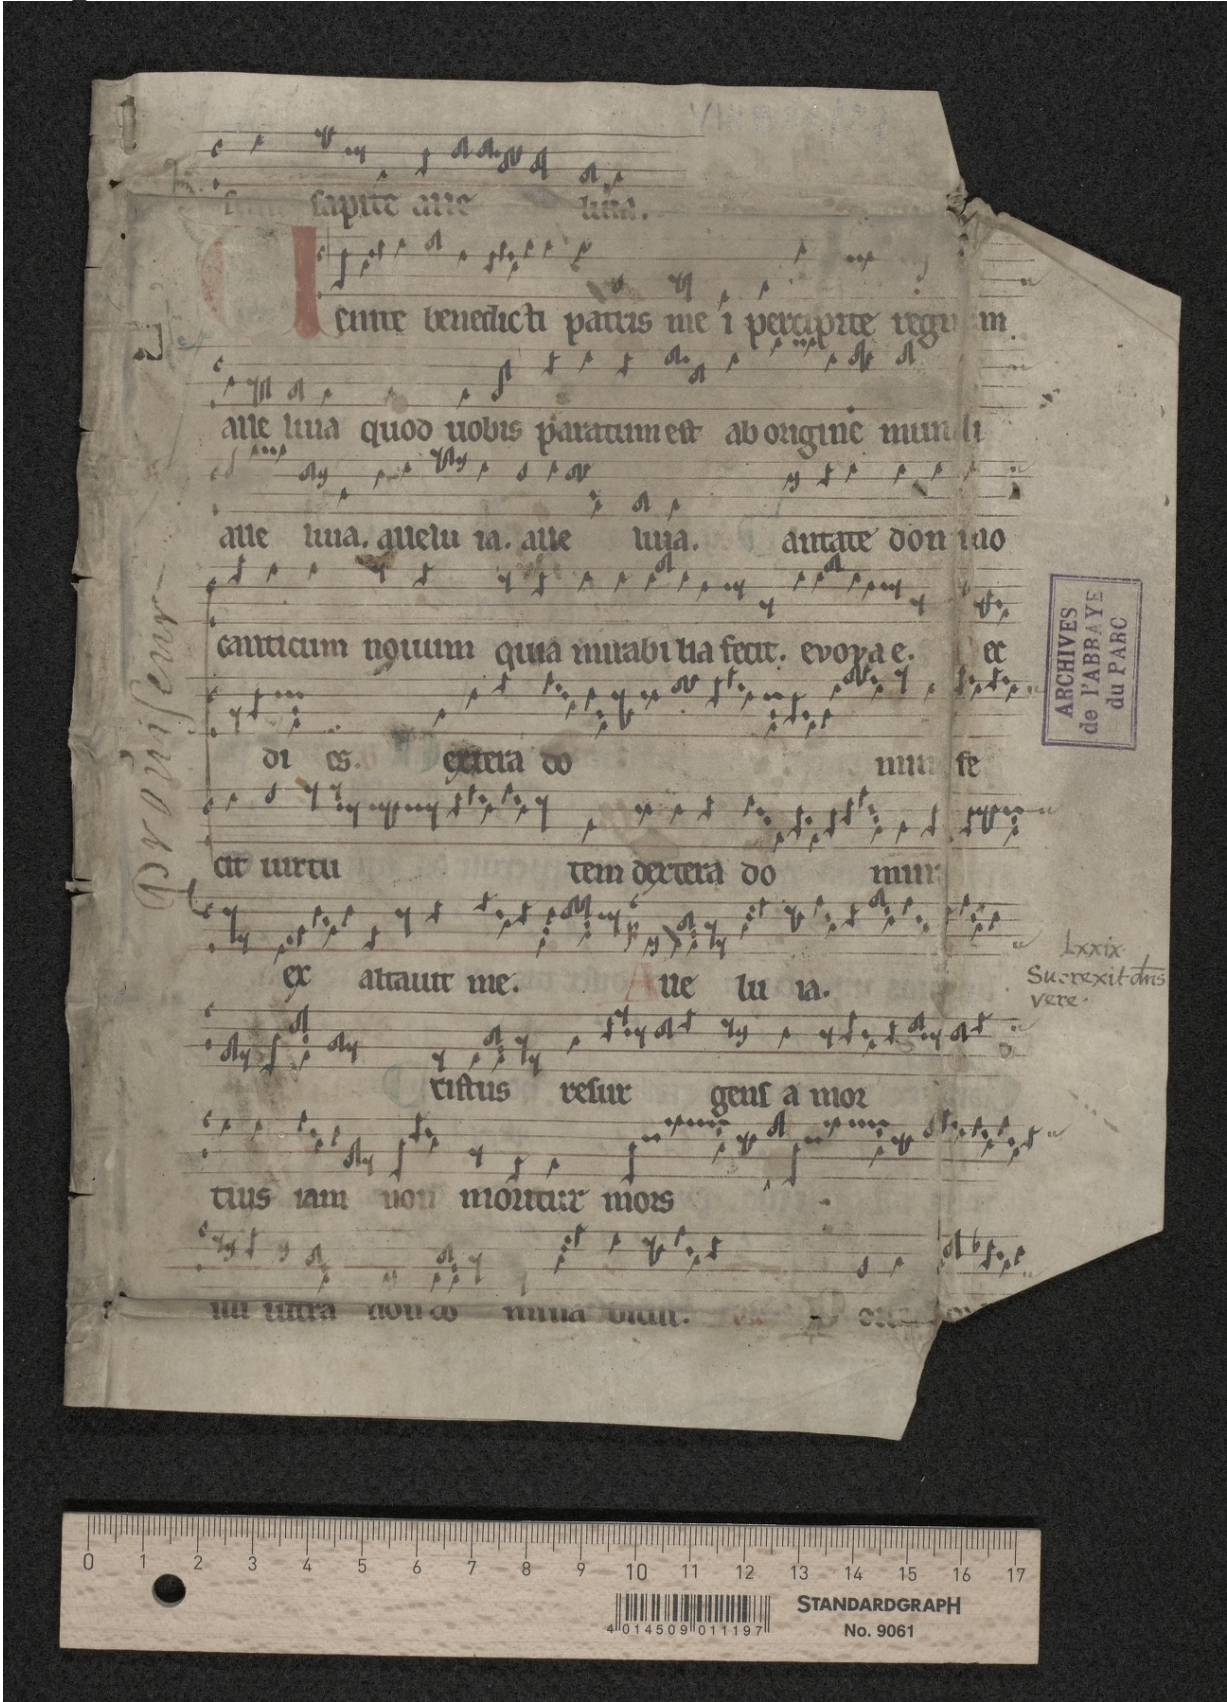 sapite alle luia.
enite benedicti patris me i percipite regn m
alle luia quod uobis paratum est ab origine mun di
alle luia. allelu ia. alle luia. antate domino
canticum nouum quia mirabi lia fecit. evovae. ec
di es. extera do mini fe
cit uirtu tem dextera do mini
ex altauit me. Alle lu ia.
ristus resur gens a mor
tuis iam non moritur mors
illi ultra non do mina bitur.
Lxxix.
Surrexit dns
vere.
ARCHIVES
de l'ABBAYE
du PARC
0 1 2 3 4 5 6 7 8 9 10 11 12 13 14 15 16 17
4 014509 011197
STANDARDGRAPH
No. 9061